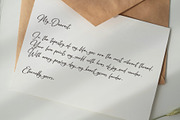 My Dearest,
In the tapestry of my life, you are the most vibrant thread.
Your love paints my world with hues of joy and wonder.
With every passing day, my heart grows fonder.
Eternally yours,